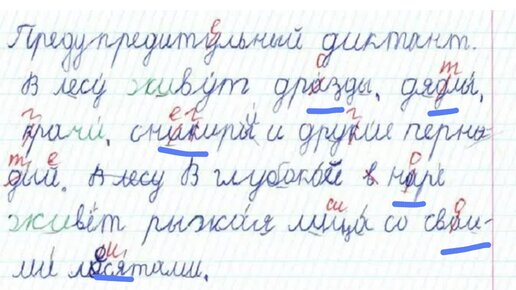 Предупредительный диктант.
В лесу живут дразды, дядлы,
крачи, сникири и друкие перна-
дыи. В глубокой наре
живёт рыжая лица со сваи-
ми лосятами.